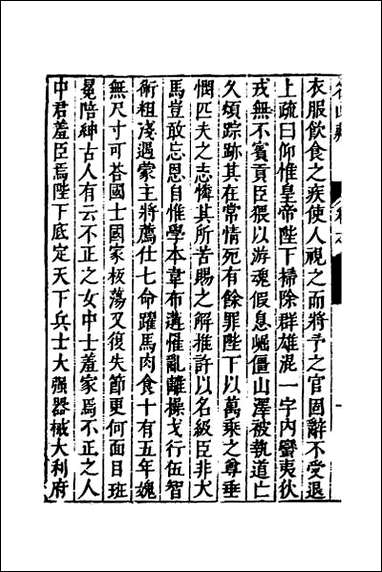 名山藏
衣服飲食之疾使人視之而將予之官固辭不受退
上疏曰仰惟皇帝陛下掃除群雄混一宇内蠻夷狄
戎無不賓貢臣猥以游魂假息崛僵山澤被執道亡
久煩踪跡其在常情死有餘罪陛下以萬乘之尊垂
憫匹夫之志憐其所苦賜之解推許以名級臣非犬
馬豈敢忘恩自惟學本韋布遘罹亂離操戈行伍智
術粗淺遇蒙主將薦仕七命躍馬肉食十有五年媿
無尺寸可荅國士國家板蕩又復失節更何面目班
冕陪紳古人有云不正之女中士羞家焉不正之人
中君羞臣焉陛下底定天下兵士大强器械大利府